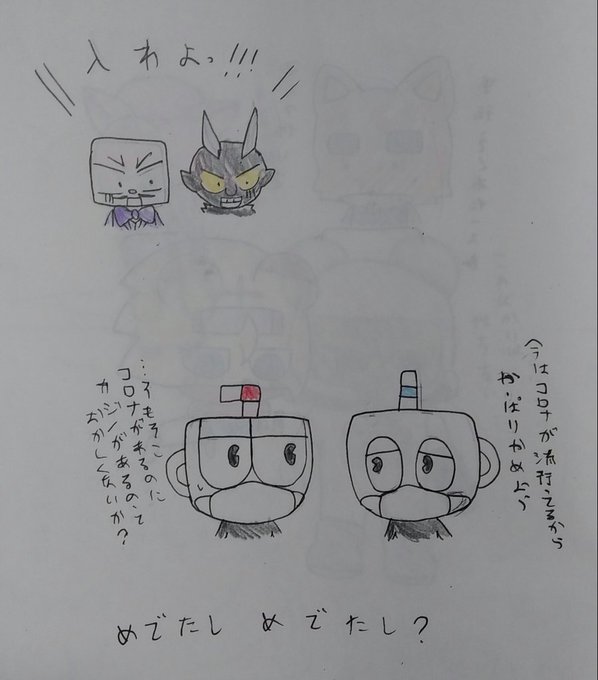 入れよっ!!!
今はコロナが流行ってるから
やっぱりやめよう
…そもそも
コロナがあるのに
カジノがあるのって
おかしくないか?
めでたし めでたし?